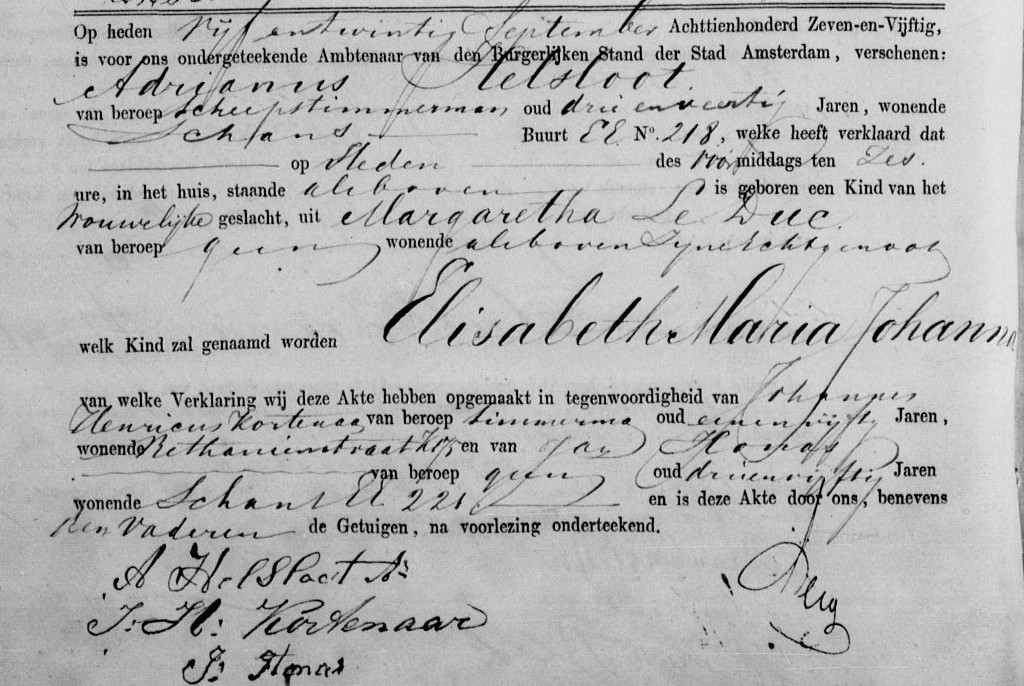 Op heden Vijf entwintig September Achttienhonderd Zeven-en-Vijftig,
is voor ons ondergeteekende Ambtenaar van den Burgerlijken Stand der Stad Amsterdam, verschenen:
Adrijanus Helsloot
van beroep scheepstimmerman oud drie enveertig Jaren, wonende
Schans Buurt EE Nº. 218, welke heeft verklaard dat
op Heden des voor middags ten Zes
ure, in het huis, staande alsboven is geboren een Kind van het
Vrouwelijke geslacht, uit Margaretha Le Duc
van beroep geen wonende alsboven Zijne Echtgenoot
welk Kind zal genaamd worden Elisabeth Maria Johanna
van welke Verklaring wij deze Akte hebben opgemaakt in tegenwoordigheid van Johannes
Henricus Kortenaar van beroep timmerman oud eenenvijftig Jaren,
wonende Bethanienstraat en van Jan Honas
van beroep geen oud drieenvijftig Jaren
wonende Schans EE 221 en is deze Akte door ons, benevens
den Vader en de Getuigen, na voorlezing onderteekend.
A Helsloot
J: H: Kortenaar
J: Honas